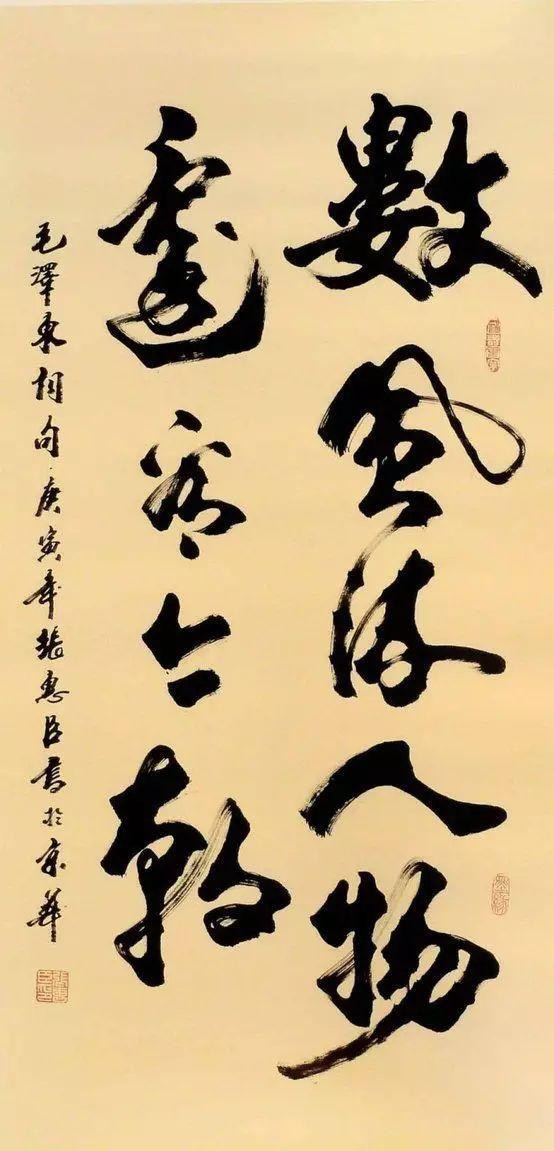 數風流人物
還看今朝
毛澤東詞句庚寅年張惠臣書於京華